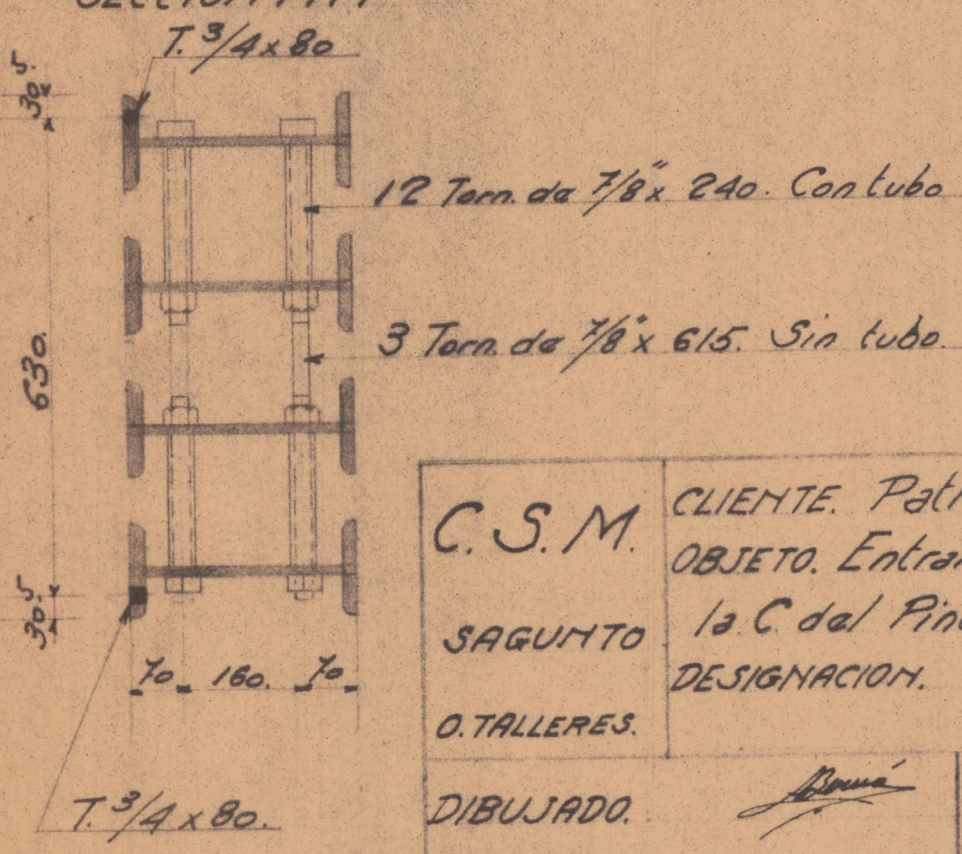 T. 3/4 x 80
30.5
12 Torn. de 7/8" x 240. Con tubo
630.
3 Torn. de 7/8" x 615. Sin tubo.
30.5
70 160. 70
T. 3/4 x 80.
C. S. M.
SAGUNTO
O. TALLERES.
CLIENTE.
OBJETO.
la C. del
DESIGNACION.
DIBUJADO.